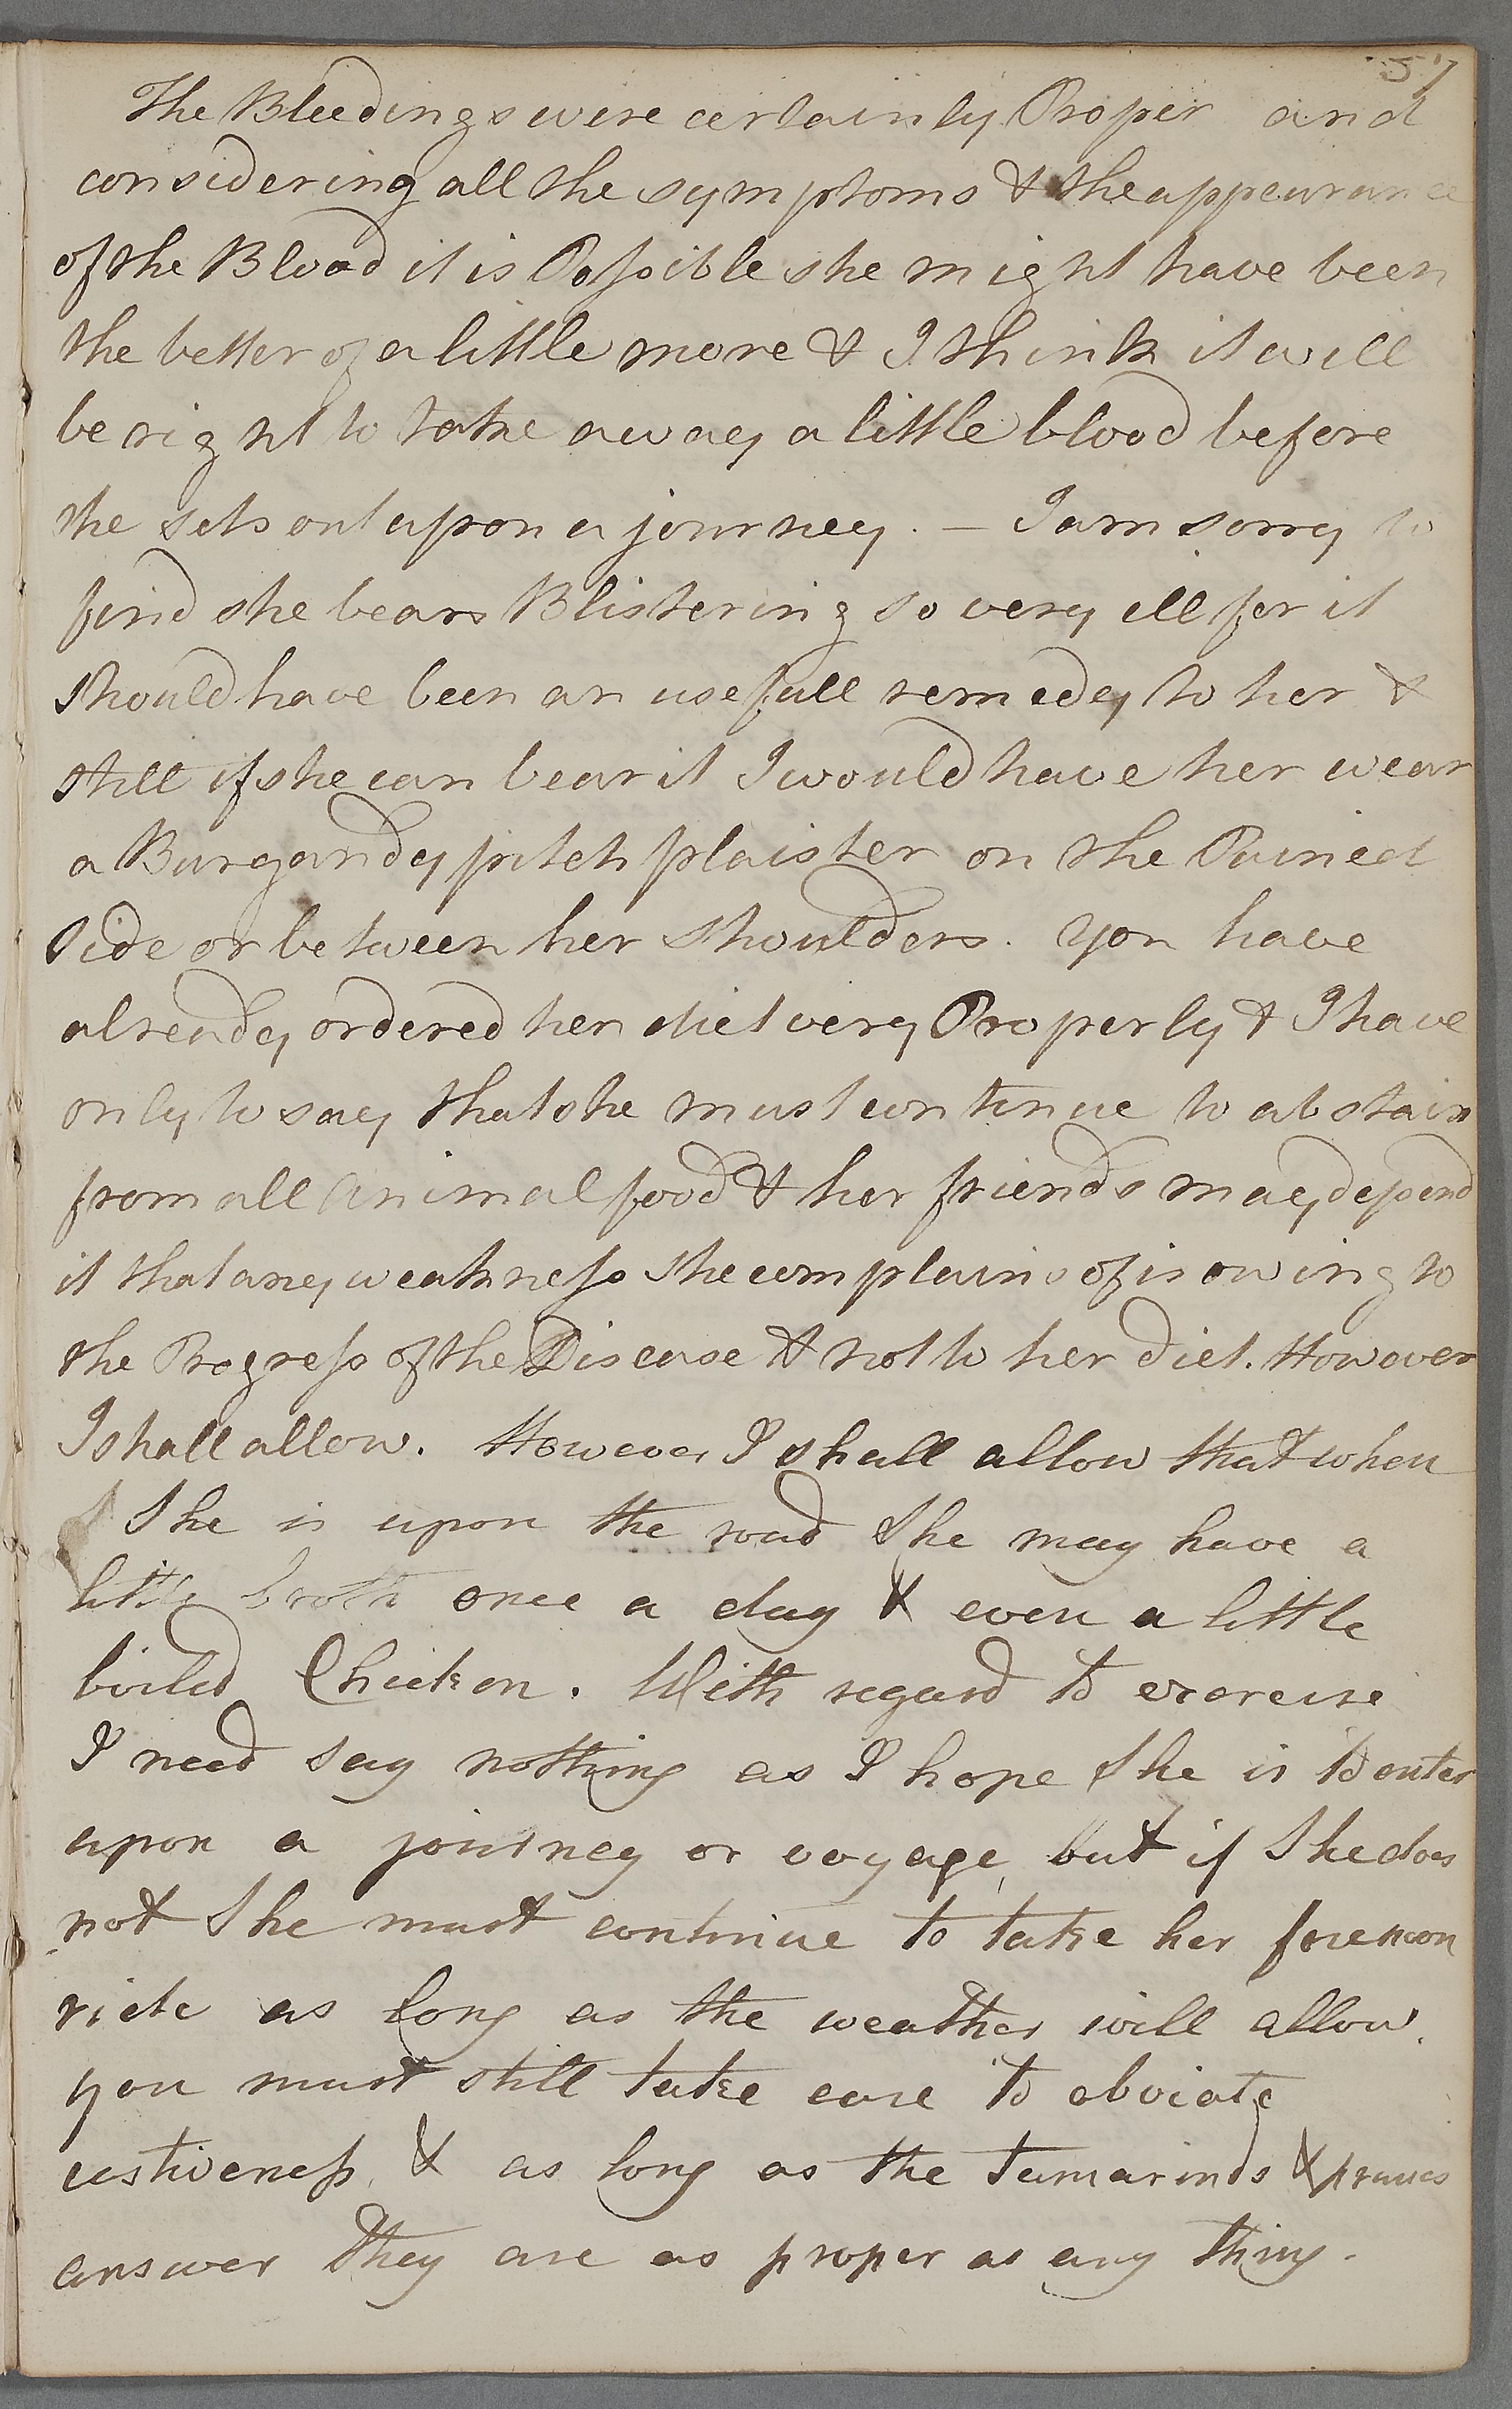 57
The Bleedings were certainly Proper and
considering all the symptoms & the appearance
of the Blood it is Possible she might have been
the better of a little more & I think it will
be right to take away a little blood before
she sets out upon a journey. — I am sorry to
find she bears Blistering so very ill for it
should have been an usefull remedy to her &
still if she can bear it I would have her wear
a Burgandy pitch plaister on the Pained
side or between her shoulders. You have
already ordered her diet very Properly & I have
only to say that she must continue to abstain
from all animal food & her friends may depend
it that any weakness she complains of is owing to
the Progress of the Disease & not to her diet. However
I shall allow. However I shall allow that when
She is upon the road She may have a
little broth once a day & even a little
boiled Chicken. With regard to exercise
I need say nothing as I hope She is to enter
upon a journey or voyage, but if She does
not She must continue to take her forenoon
ride as long as the weather will allow.
you must still take care to obviate
costiveness, & as long as the Tamarinds & prunes
answer they are as proper as any thing.